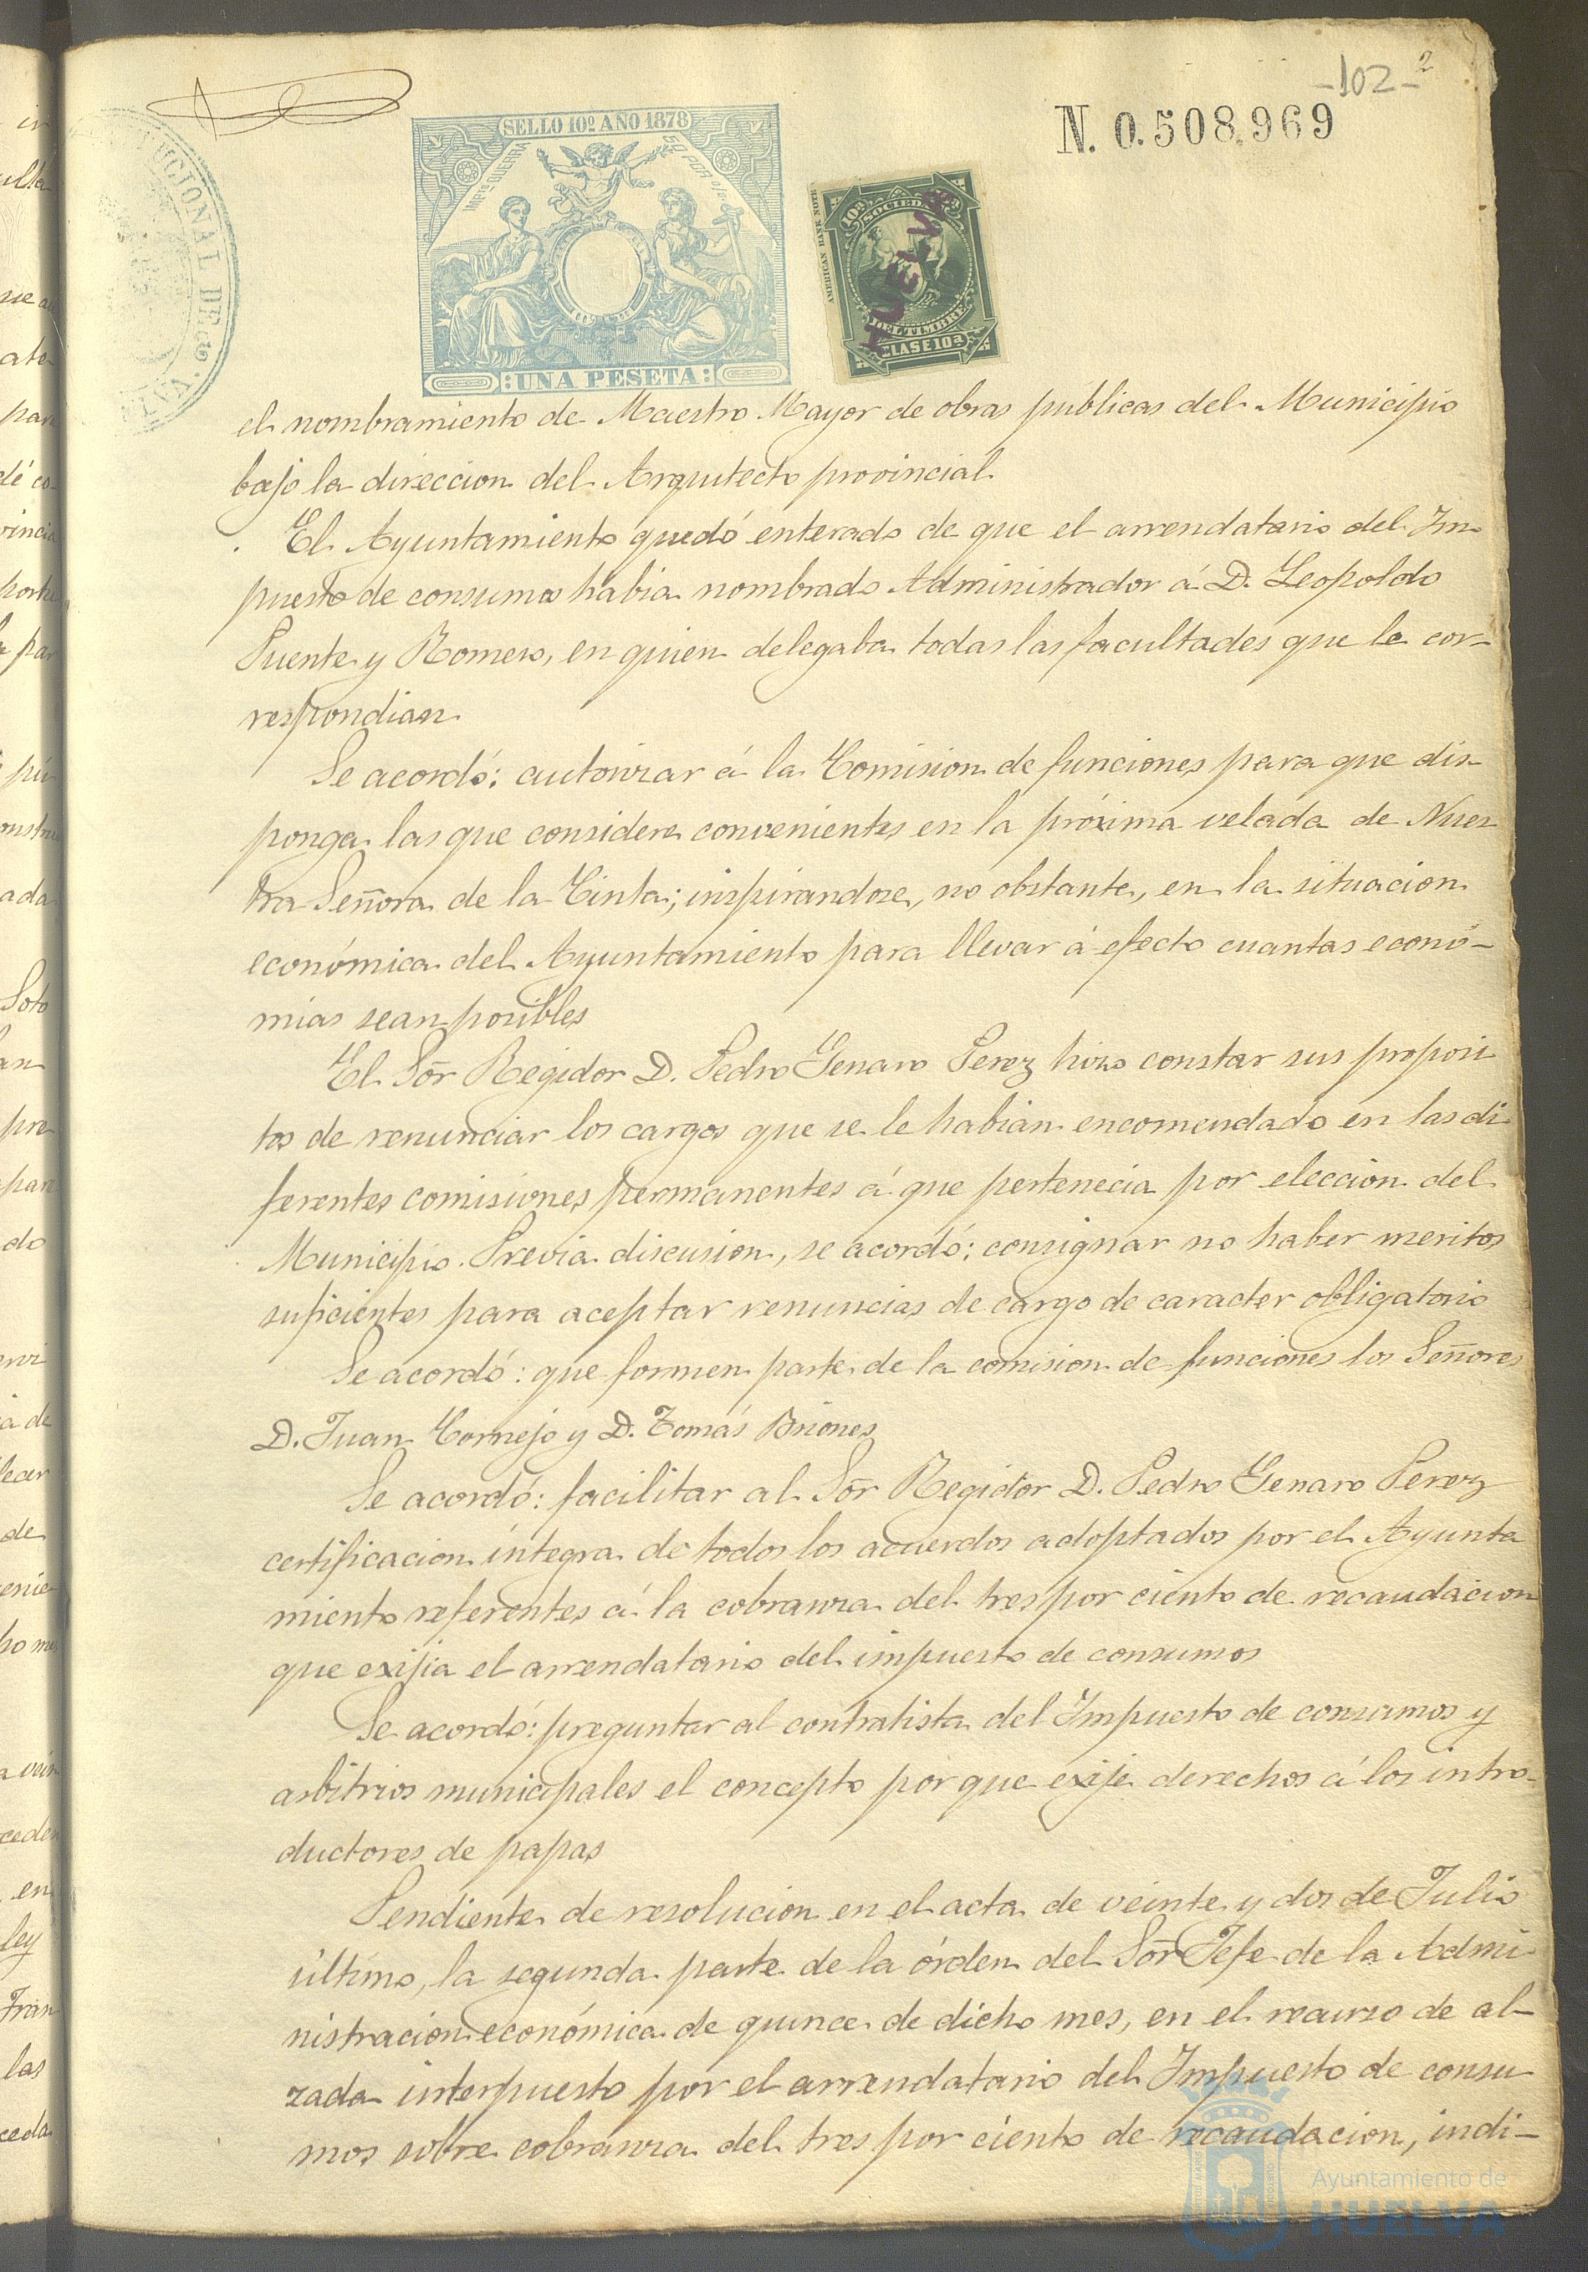 -102- 2
N. 0.508.969
SELLO 10º AÑO 1878
IMPTO GUERRA
50 POR 0/0
UNA PESETA
AMERICAN BANK NOTE
10ª SOCIEDAD
DEL TIMBRE
CLASE 10ª
HUELVA
UCIONAL DE
el nombramiento de Maestro Mayor de obras públicas del Municipio
bajo la direccion del Arquitecto provincial
El Ayuntamiento quedó enterado de que el arrendatario del Im-
puesto de consumos habia nombrado Administrador á D. Leopoldo
Puente y Romero, en quien delegaba todas las facultades que le cor-
respondian.
Se acordó: autorizar á la Comision de funciones para que dis-
ponga las que considere convenientes en la próxima velada de Nues
tra Señora de la Cinta; inspirandose, no obstante, en la situacion
económica del Ayuntamiento para llevar á efecto cuantas econó-
mias sean posibles
El Sõr Regidor D. Pedro Genaro Perez hizo constar sus proposi
tos de renunciar los cargos que se le habian encomendado en las di
ferentes comisiones permanentes á que pertenecia por eleccion del
Municipio. Previa discusion, se acordó: consignar no haber meritos
suficientes para aceptar renuncias de cargo de caracter obligatorio
Se acordó: que formen parte de la comision de funciones los Señores
D. Juan Cornejo y D. Tomás Briones
Se acordó: facilitar al Sõr Regidor D. Pedro Genaro Perez
certificacion íntegra de todos los acuerdos adoptados por el Ayunta
miento referentes á la cobranza del tres por ciento de recaudacion
que exijia el arrendatario del impuesto de consumos
Se acordó: preguntar al contratista del Impuesto de consumos y
arbitrios municipales el concepto por que exije derechos á los intro-
ductores de papas
Pendiente de resolucion en el acta de veinte y dos de Julio
último, la segunda parte de la órden del Sõr Jefe de la Admi-
nistracion económica de quince de dicho mes, en el recurso de al-
zada interpuesto por el arrendatario del Impuesto de consu
mos sobre cobranza del tres por ciento de recaudacion, indi-
Ayuntamiento de
HUELVA